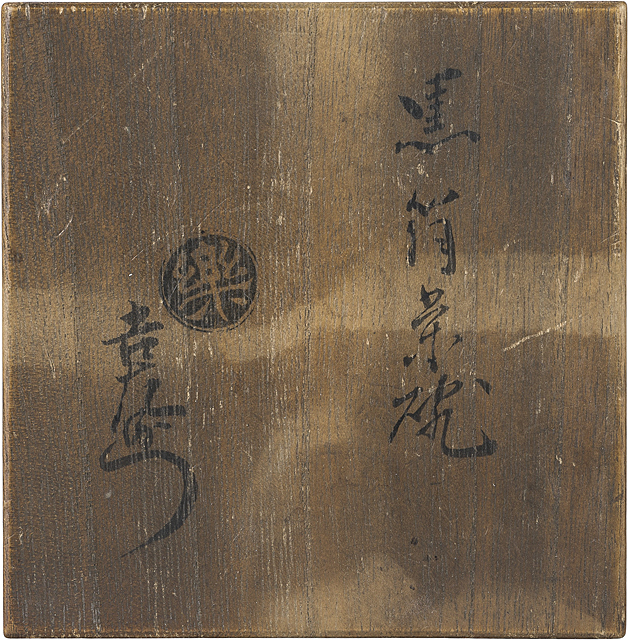 黒筒茶碗
樂
吉左衛門